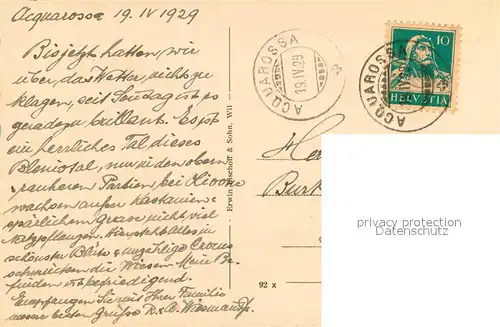 Acquarossa 19.IV 1929
Bis jetzt hatten, wir
über, das Wetter, nichts zu
klagen, seit Sonntag ist es
geradezu brillant. Es ist
ein herrliches Tal dieses
Bleniotal, nur in den obern
rauheren Partien bei Olivone
wachsen außer Kastanien
spärlichem Grase nicht viel
Nutzpflanzen. Hier steht Alles in
schönster Blüte & unzählige Crocus
schmücken die Wiesen. Mein Be-
finden ist befriedigend.
Empfangen Sie mit Ihrer Familie
unsere besten Grüsse
Erwin Bischoff & Sohn, Wil
ACQUAROSSA
19.IV.29
ACQUAROSSA
10
HELVETIA
ACQUAROSSA
He
Burk
92 x
privacy protection
Datenschutz